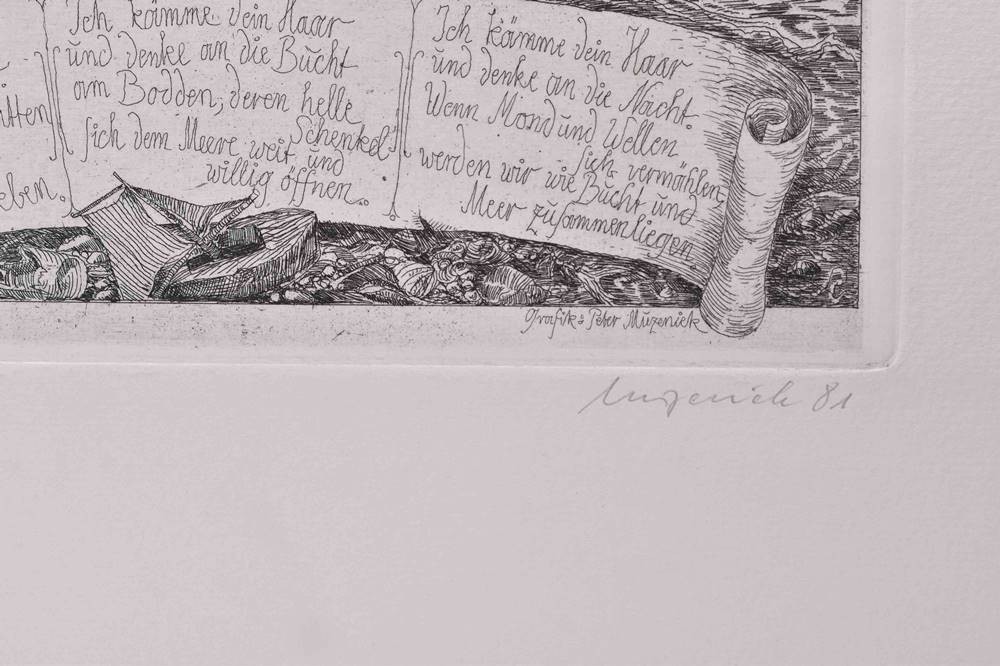 itten
eben.
Ich kämme dein Haar
und denke an die Bucht
am Bodden, deren helle
Schenkel
sich dem Meere weit und
willig öffnen.
Ich kämme dein Haar
und denke an die Nacht.
Wenn Mond und Wellen
sich vermählen,
werden wir wie Bucht und
Meer zusammenliegen.
Grafik: Peter Muzeniek
Muzeniek 81